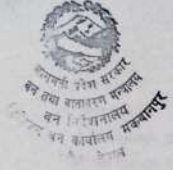 बागमती प्रदेश सरकार
वन तथा वातावरण मन्त्रालय
वन निर्देशनालय
वन कार्यालय मकवानपुर
नेपाल